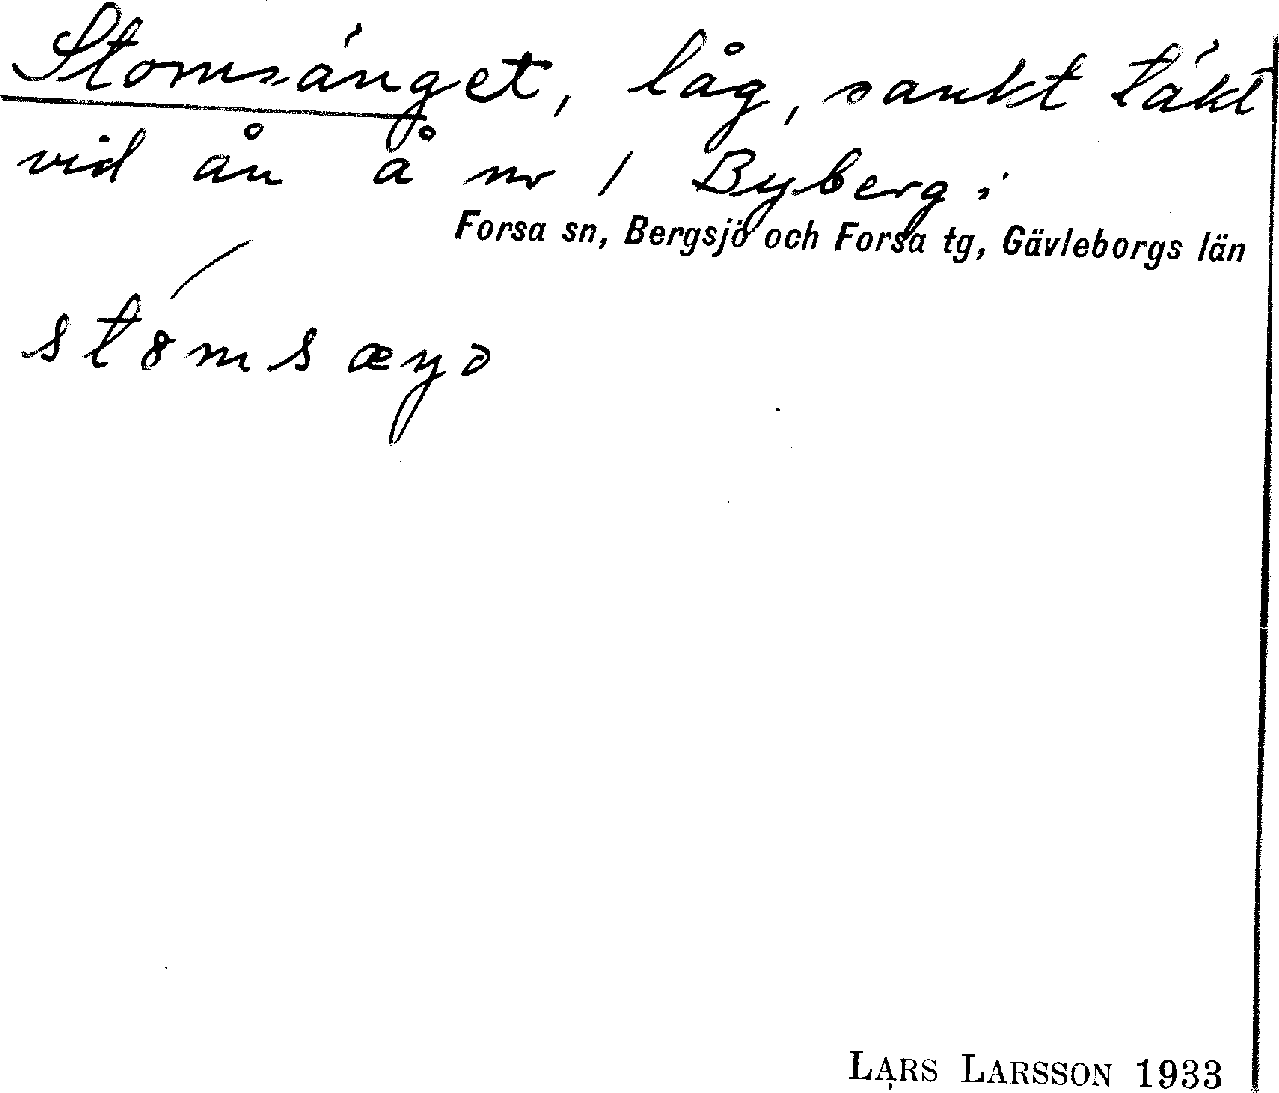 Stomsänget, låg, sankt täkt
vid ån å nr 1 Byberg i
Forsa sn, Bergsjö och Forsa tg, Gävleborgs län
LARS LARSSON 1933